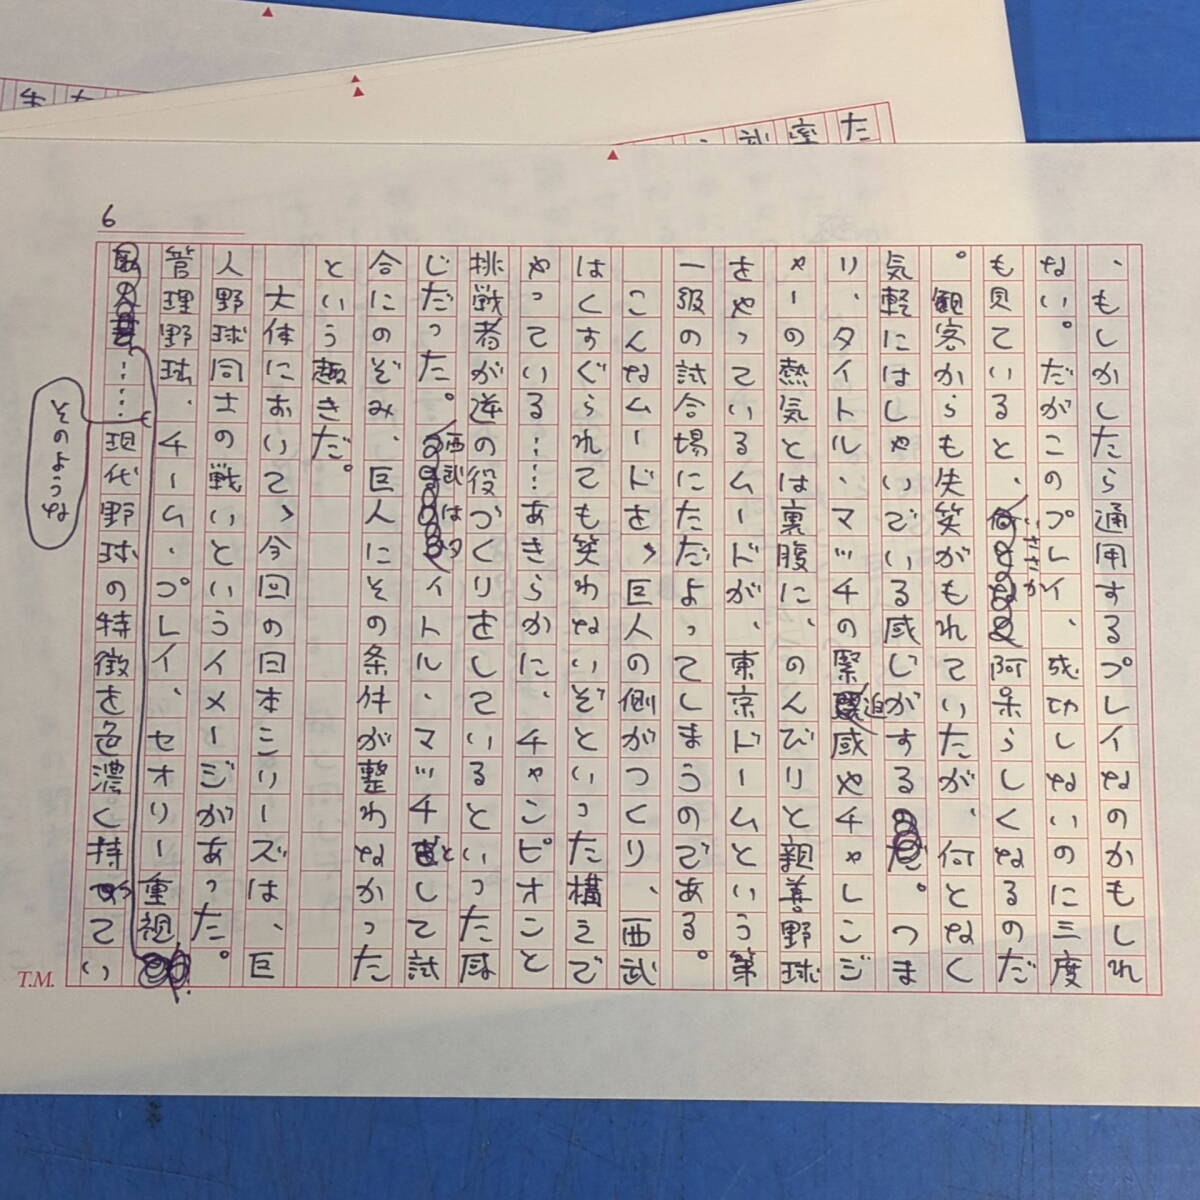 6
、もしかしたら通用するプレイなのかもしれ
ない。だがこのプレイ、成功しないのに三度
も見ていると、いささか阿呆らしくなるのだ
。観客からも失笑がもれていたが、何となく
気軽にはしゃいでいる感じがする。つま
り、タイトル、マッチの緊迫感やチャレンジ
ャーの熱気とは裏腹に、のんびりと親善野球
をやっているムードが、東京ドームという第
一級の試合場にただよってしまうのである。
こんなムードを、巨人の側がつくり、西武
はくすぐられても笑わないぞといった構えで
やっている……あきらかに、チャンピオンと
挑戦者が逆の役づくりをしているといった感
じだった。西武はタイトル、マッチとして試
合にのぞみ、巨人にその条件が整わなかった
という趣きだ。
大体において、今回の日本シリーズは、巨
人野球同士の戦いというイメージがあった。
管理野球、チーム・プレイ、セオリー重視
……そのような現代野球の特徴を色濃く持ってい
T.M.